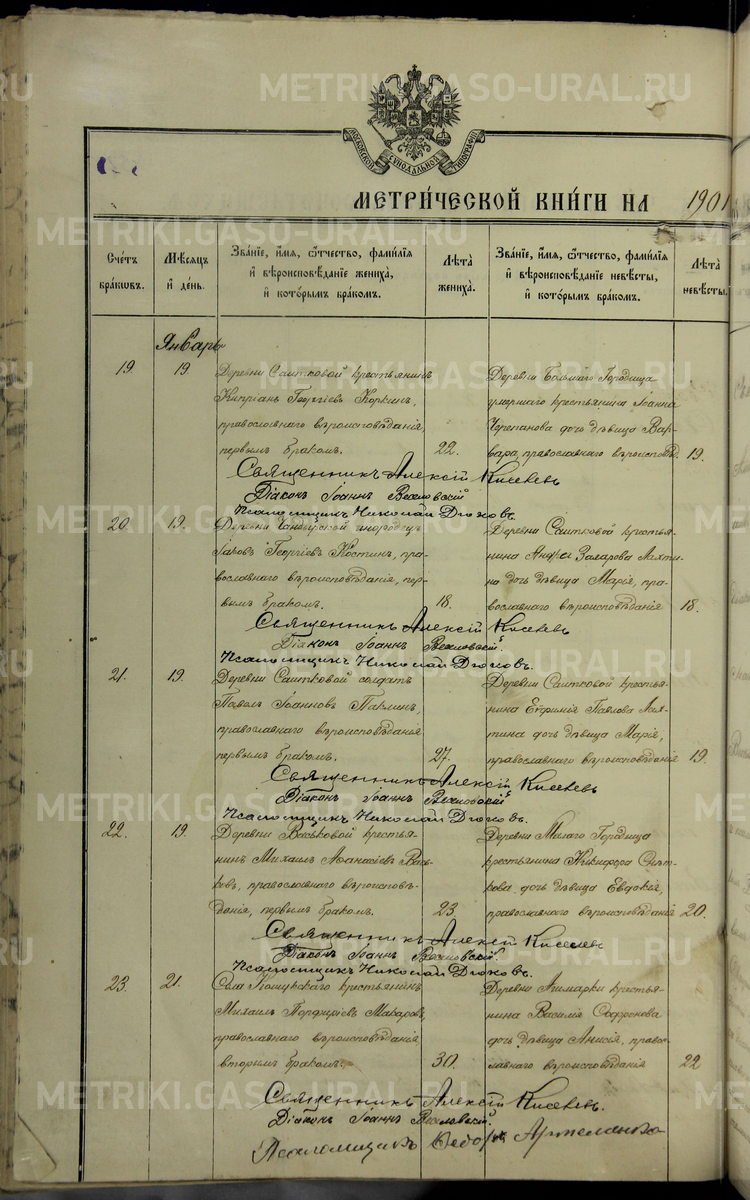 METRIKI.GASO-URAL.RU
МОСКОВСКОЙ СУНОДАЛЬНОЙ ТИПОГРАФІИ
МЕТРИЧЕСКОЙ КНИГИ НА 1901
Счетъ бракωвъ.
Мѣсяцъ и день.
Званіе, имя, ѻтчество, фамилія и вѣроисповѣданіе жениха, и которымъ бракомъ.
Лѣта жениха.
Званіе, имя, ѻтчество, фамилія и вѣроисповѣданіе невѣсты, и которымъ бракомъ.
Лѣта невѣсты.
Январь
19
19.
Деревни Саитковой крестьянинъ
Кипріанъ Георгіевъ Коркинъ,
православнаго вѣроисповѣданія,
первымъ бракомъ.
22.
Деревни Большаго Городища
умершаго крестьянина Іоанна
Черепанова дочь дѣвица Вар-
вара, православнаго вѣроисповѣд.
19.
Священникъ Алексій Киселевъ
Діаконъ Іоаннъ
Псаломщикъ Николай
20
19.
Деревни инородецъ
Іаковъ Георгіевъ Костинъ, пра-
вославнаго вѣроисповѣданія, пер-
вымъ бракомъ.
18.
Деревни Саитковой крестья-
нина Захарова
дочь дѣвица Марія, пра-
вославнаго вѣроисповѣданія
18.
Священникъ Алексій Киселевъ
Діаконъ Іоаннъ
Псаломщикъ Николай
21.
19.
Деревни Саитковой солдатъ
Павелъ Іоанновъ Паклинъ,
православнаго вѣроисповѣданія
первымъ бракомъ.
27.
Деревни Саитковой крестья-
нина Евфимія Павлова
дочь дѣвица Марія,
православнаго вѣроисповѣданія
19.
Священникъ Алексій Киселевъ
Діаконъ Іоаннъ
Псаломщикъ Николай
22.
19.
Деревни Васьковой крестья-
нинъ Михаилъ Аѳанасіевъ Вась-
ковъ, православнаго вѣроисповѣ-
данія, первымъ бракомъ.
23.
Деревни Малаго Городища
крестьянина Никифора
дочь дѣвица Евдокія,
православнаго вѣроисповѣданія
20.
Священникъ Алексій Киселевъ
Діаконъ Іоаннъ
Псаломщикъ Николай
23.
21.
Села Кошукскаго крестьянинъ
Михаилъ Порфиріевъ Макаровъ,
православнаго вѣроисповѣданія
вторымъ бракомъ.
30.
Деревни крестья-
нина Василія Софронова
дочь дѣвица Анисія, право-
славнаго вѣроисповѣданія
22
Священникъ Алексій Киселевъ.
Діаконъ Іоаннъ
Псаломщикъ Ѳедоръ